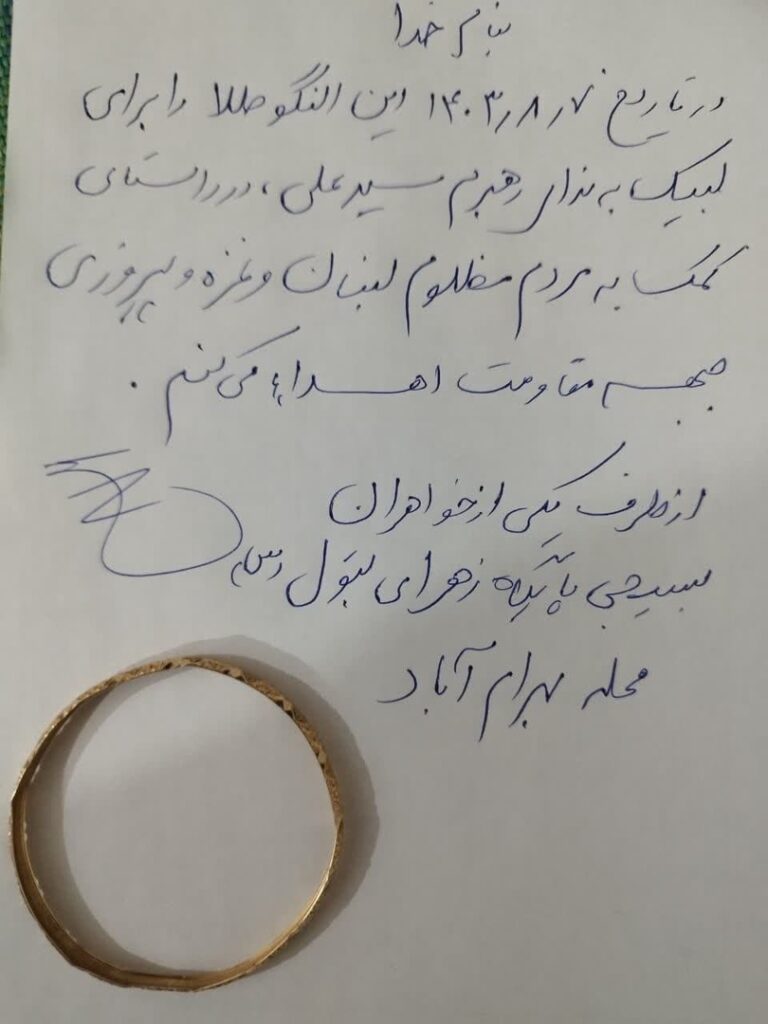 بنام خدا
در تاریخ ۱۴۰۳٫۸٫۷ این النگو طلا را برای
لبیک به ندای رهبرم سید علی، در راستای
کمک به مردم مظلوم لبنان و غزه و پیروزی
جبهه مقاومت اهداء می کنم.
از طرف یکی از خواهران
بسیجی پایگاه زهرای بتول (س)
محله بهرام آباد